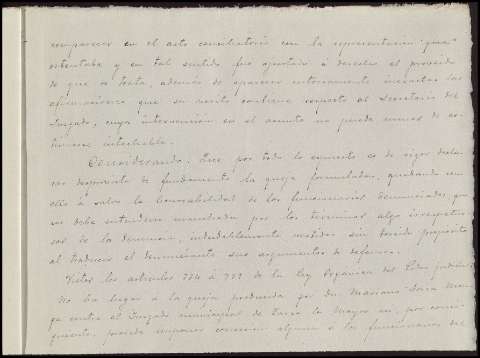 comparecer en el acto conciliatorio con la representacion que
ostentaba y en tal sentido fue ajustado á derecho el proveido
de que se trata, además de aparecer notoriamente inexactas las
afirmaciones que su escrito contiene respecto al Secretario del
Juzgado, cuya intervención en el asunto no puede menos de es-
timarse intachable.
Considerando: Que por todo lo expuesto es de rigor decla-
rar desprovista de fundamento la queja formulada, quedando con
ello á salvo la honorabilidad de los funcionarios denunciados que
no debe entenderse menoscabada por los términos algo irrespetuo-
sos de la denuncia, indudablemente vertidos sin torcido propósito
al traducir el denunciante sus argumentos de defensa.
Vistos los artículos 734 á 7 2 de la Ley Orgánica del Poder judicial
No ha lugar á la queja producida por Dn. Mariano
contra el Juzgado municipal de la Mayor ni, por consi-
guiente, procede imponer corrección alguna á los funcionarios del